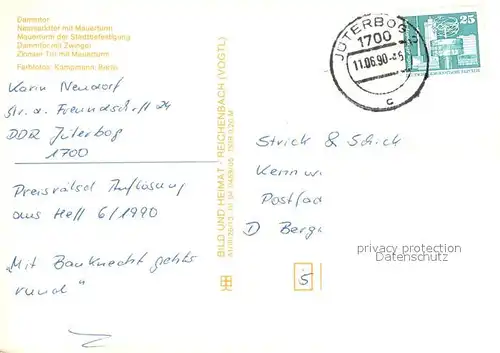 Dammtor
Neumarkttor mit Mauerturm
Mauerturm der Stadtbefestigung
Dammtor mit Zwinger
Zinnaer Tor mit Mauerturm
Farbfotos: Kämpmann, Berlin
Karin Neudorf
Str. d. Freundschaft 24
DDR Jüterbog
1700
Preisrätsel Auflösung
aus Heft 6/1990
„Mit Bauknecht gehts
rund"
BILD UND HEIMAT · REICHENBACH (VOGTL)
JÜTERBOG
1700
11.06.90
c
25
Strick & Schick
Kenn w
Postfac
D Berg
5
privacy protection
Datenschutz